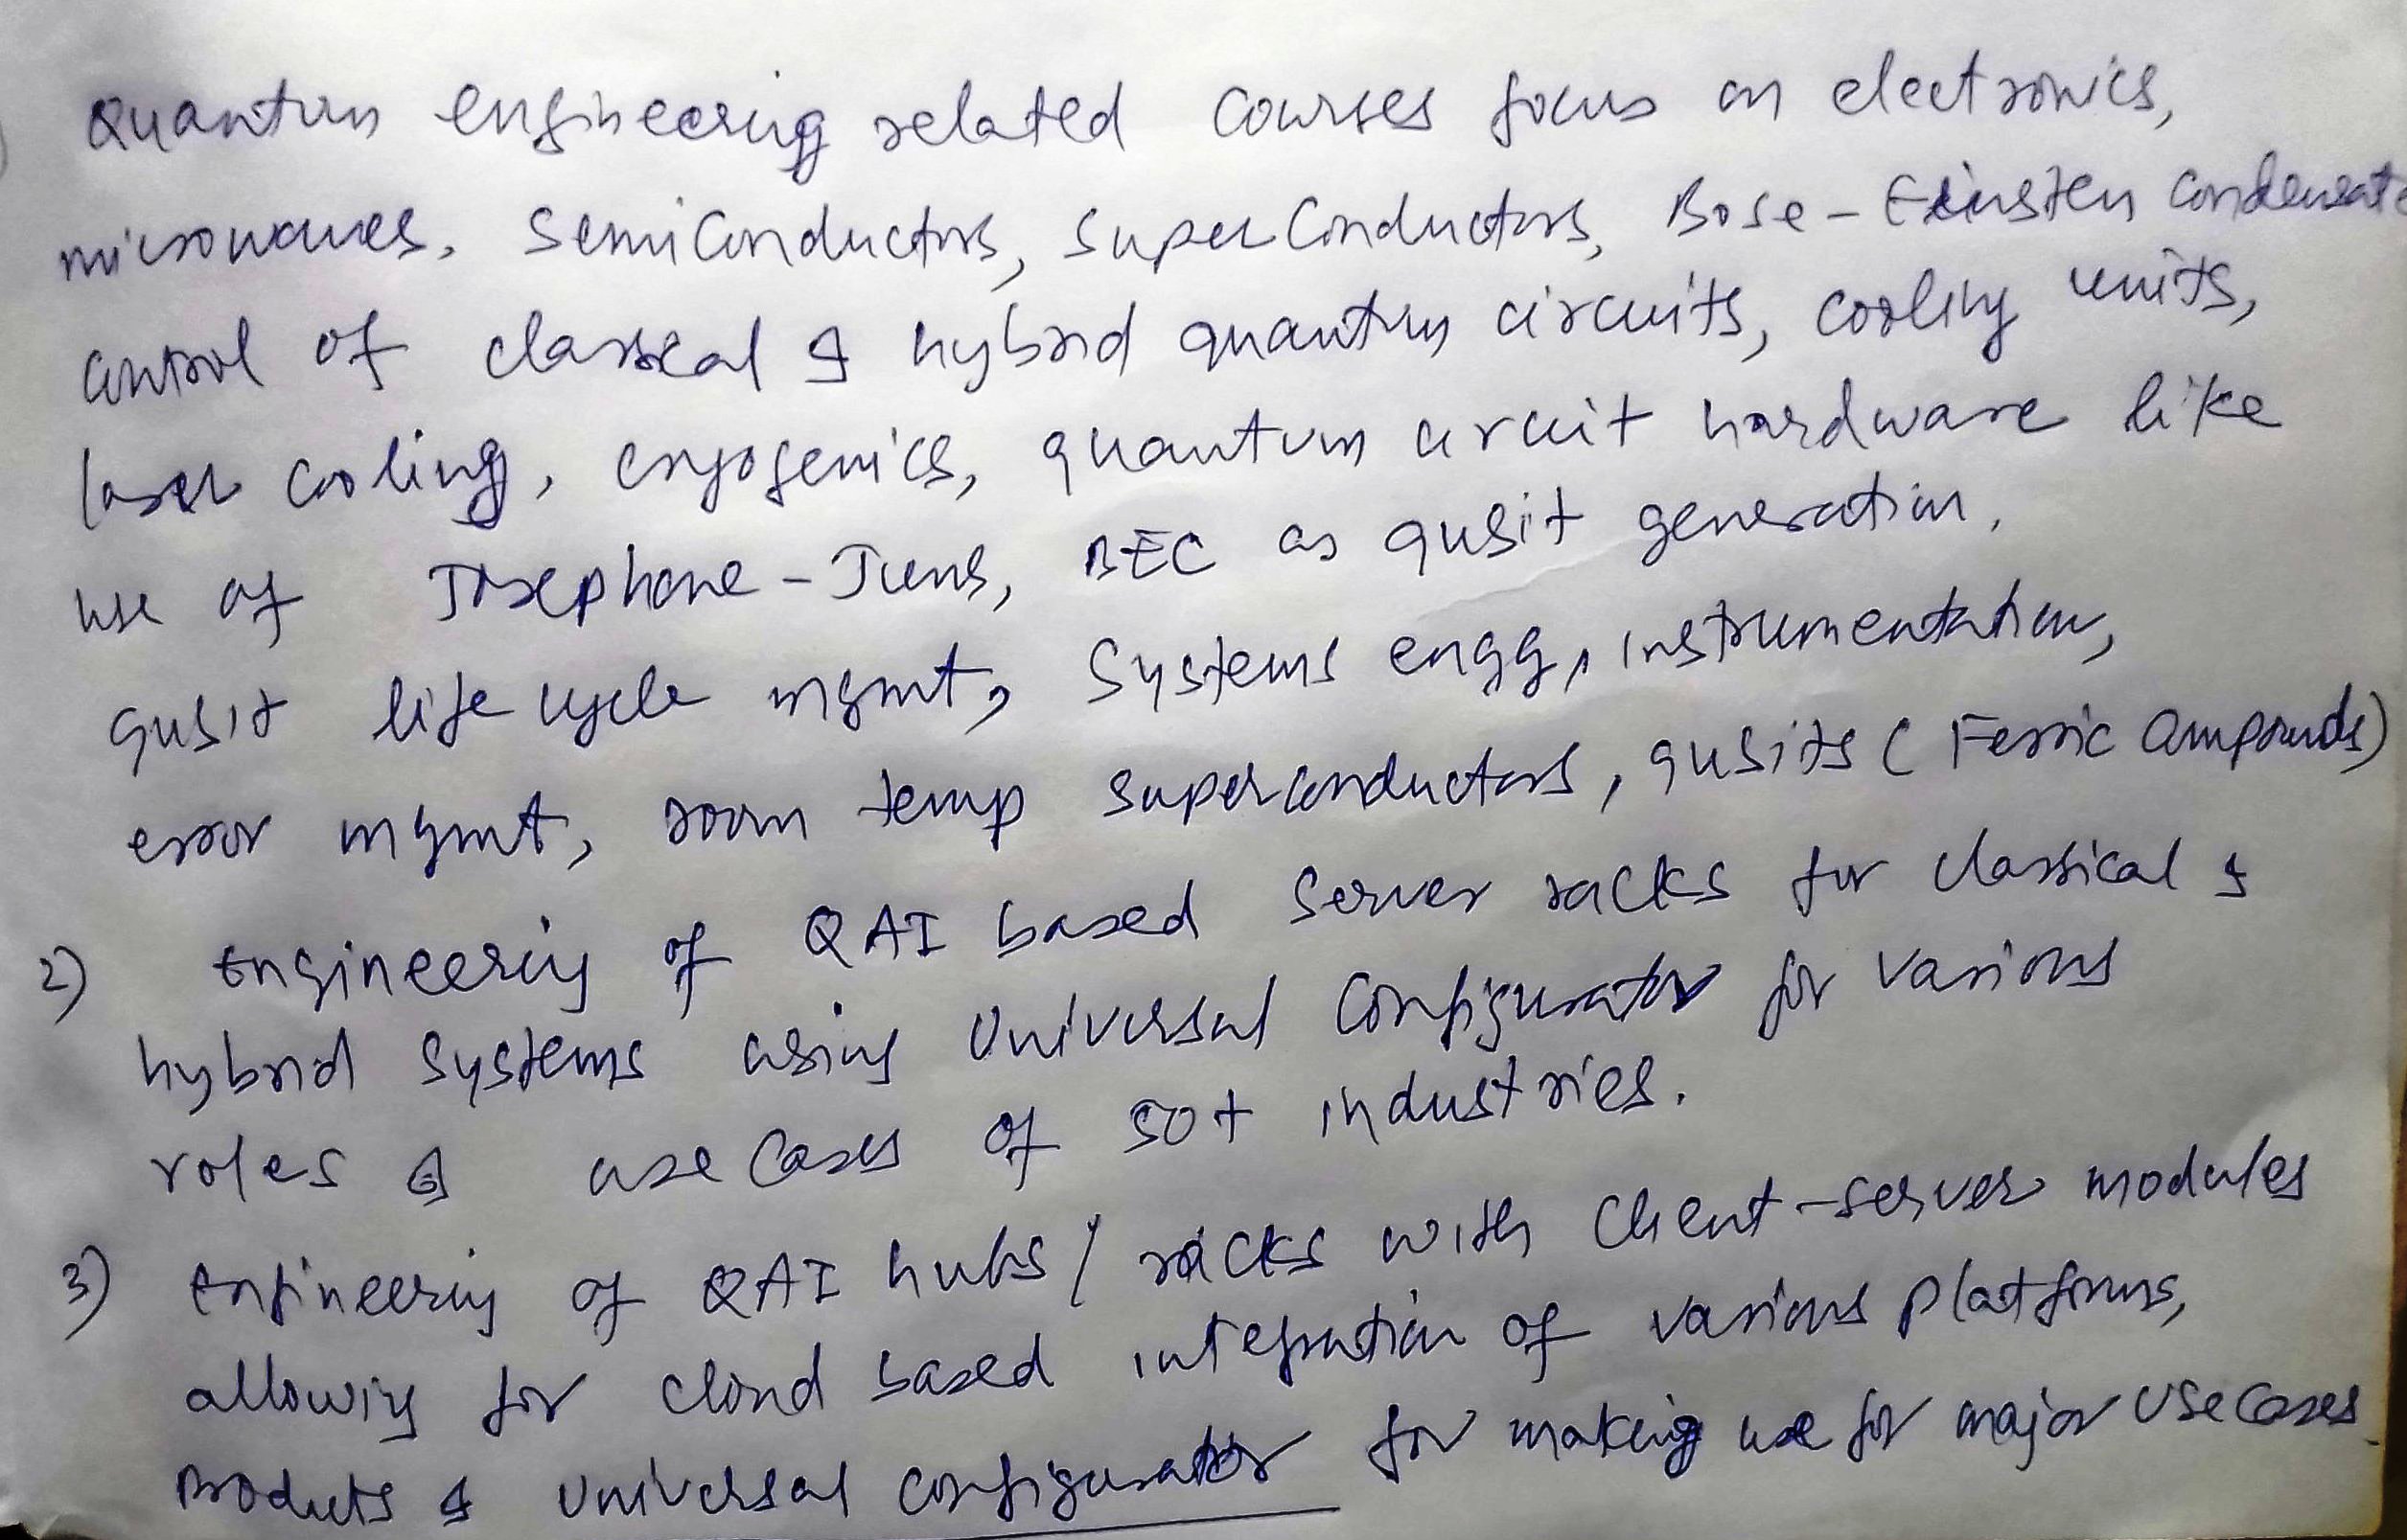 Quantum engineering related courses focus on electronics,
microwaves, semiconductors, superconductors, Bose-Einsten condensate
control of classical & hybrid quantum circuits, cooling units,
laser cooling, cryogenics, quantum circuit hardware like
use of Josephone-Juns, BEC as qubit generation.
qubit life cycle mgmt, systems engg, instrumentation,
error mgmt, room temp superconductors, qubits (Ferric compounds)
2) Engineering of QAI based server racks for classical &
hybrid systems using universal configurator for various
roles & use cases of 50+ industries.
3) Engineering of QAI hubs/ racks with client-server modules
allowing for cloud based integration of various platforms,
products & universal configurator for making use for major use cases.